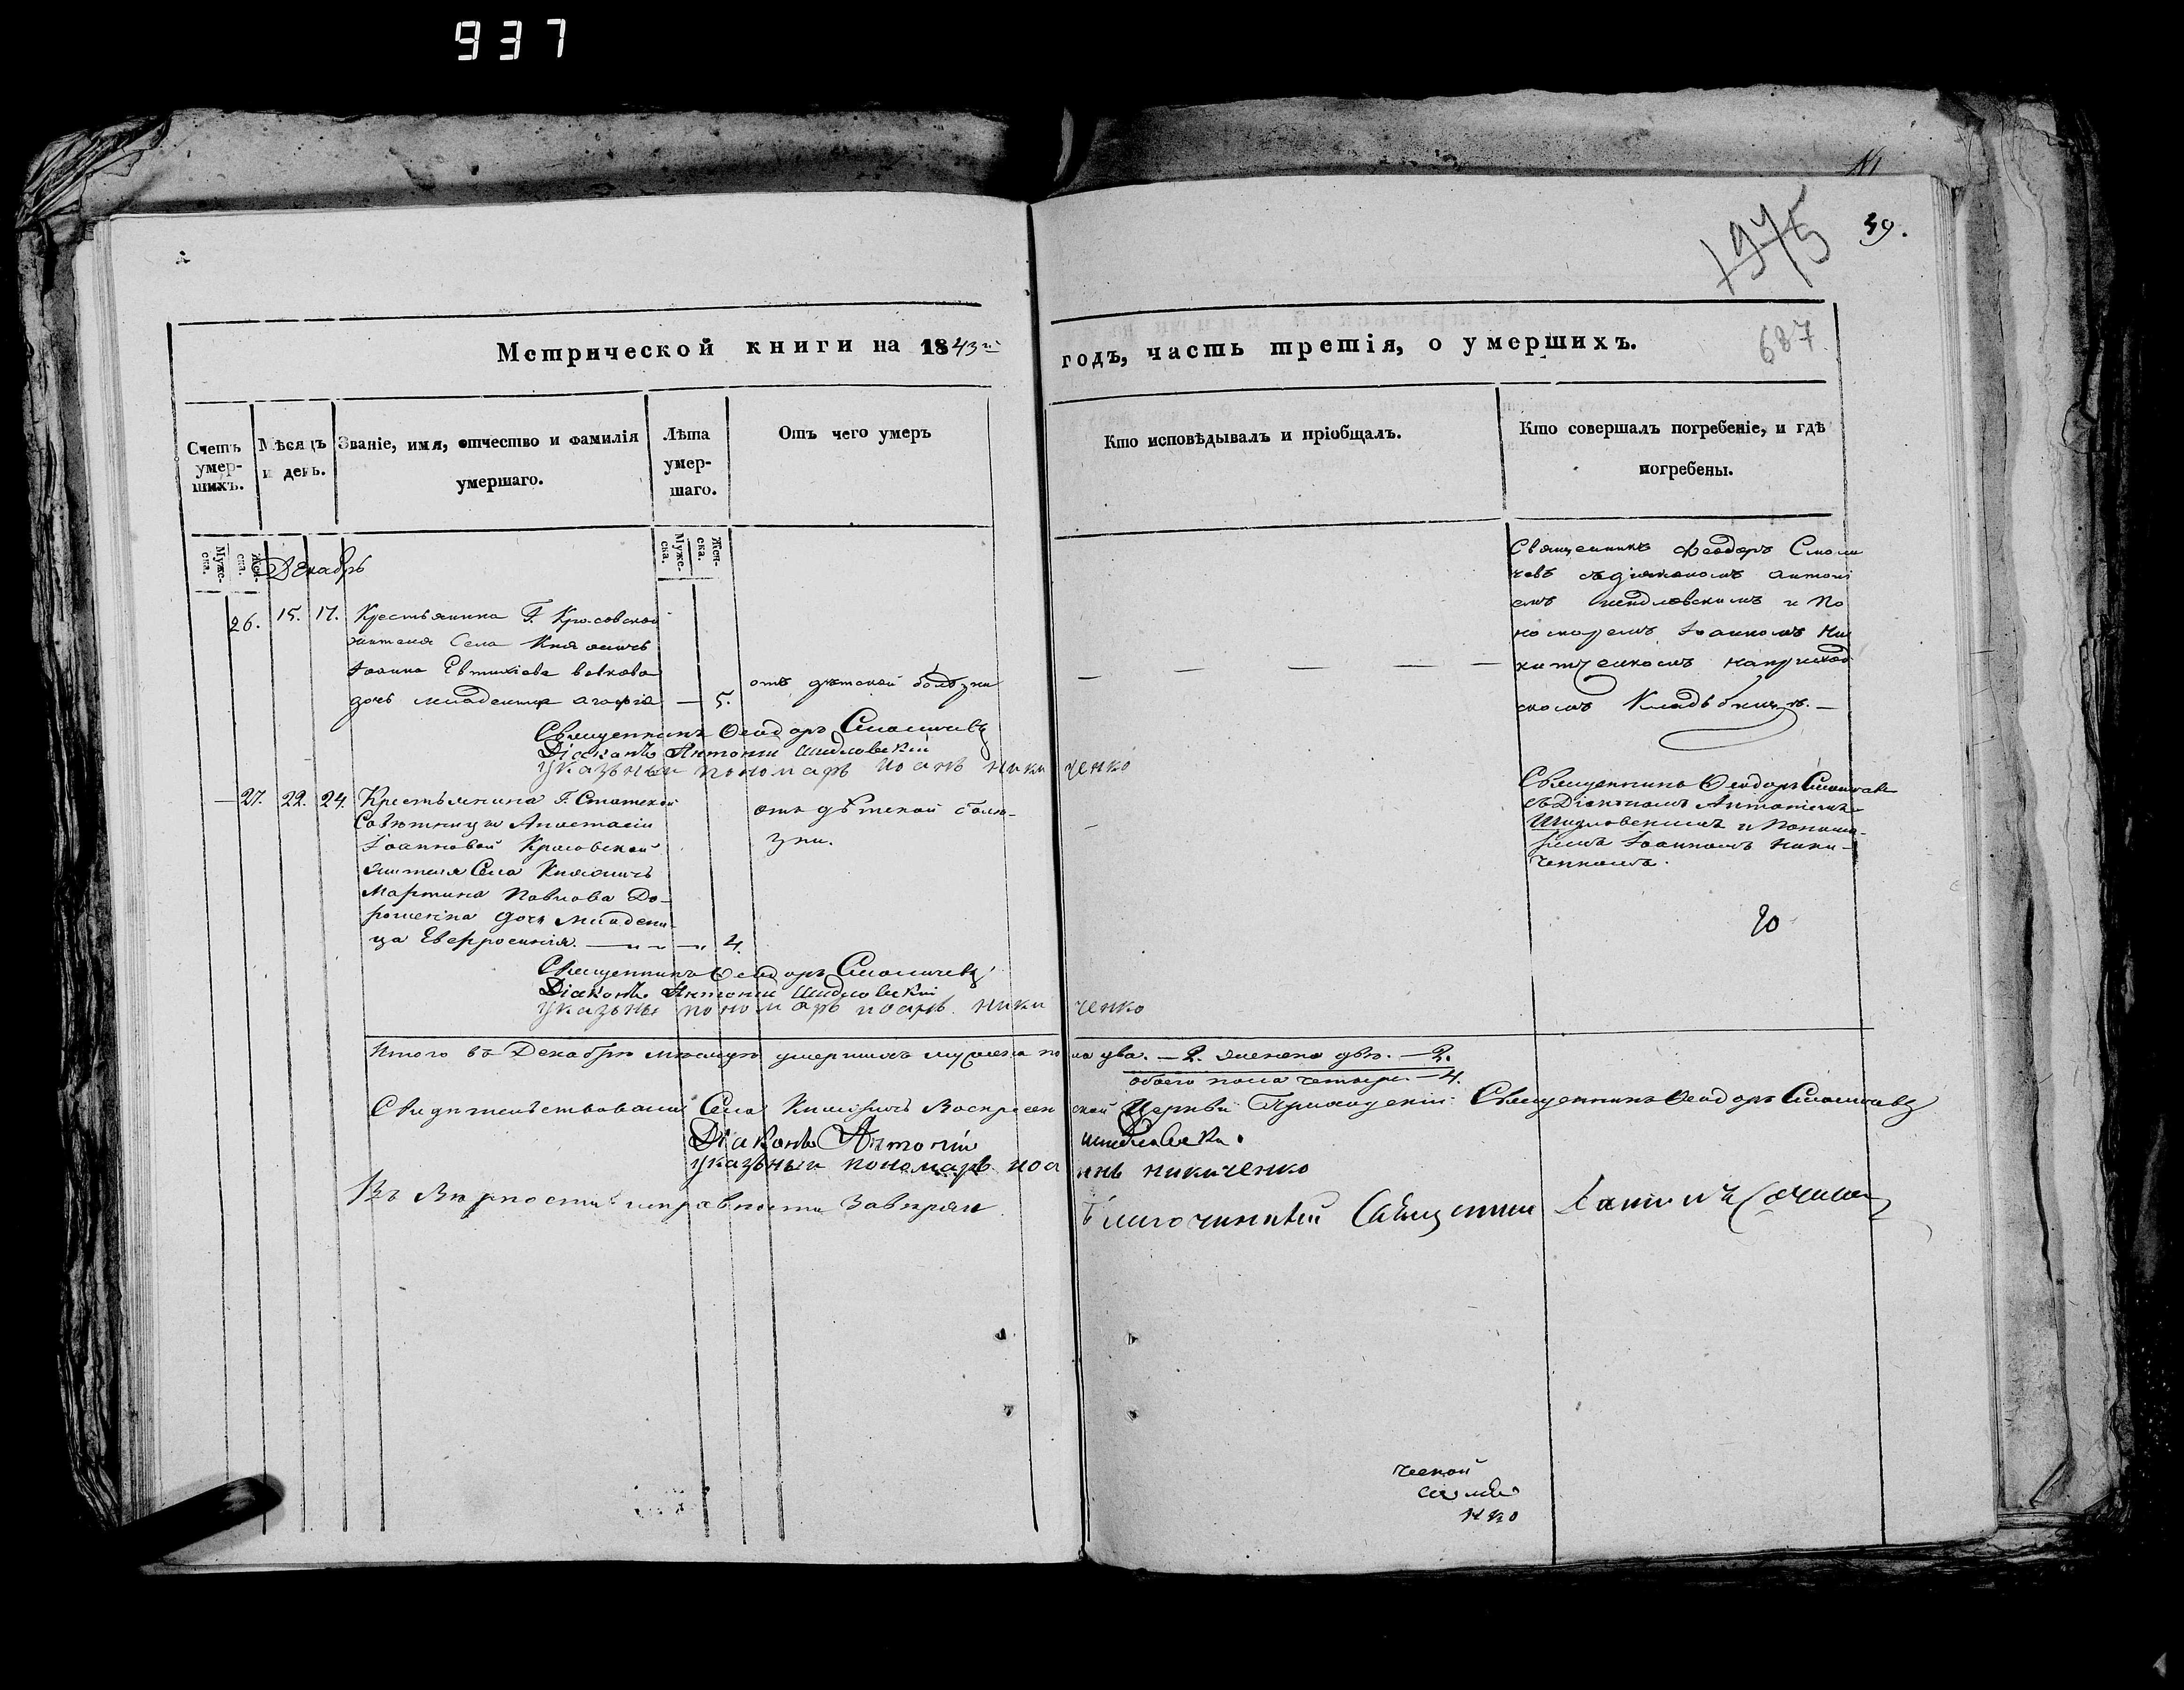 937
1975
39.
Метрической книги на 1843й годъ, часть третія, о умершихъ.
687
Счетъ умер-шихъ.
Мѣсяцъ и день.
Званіе, имя, отчество и фамилія умершаго.
Лѣта умер-шаго.
Отъ чего умеръ
Кто исповѣдывалъ и пріобщалъ.
Кто совершалъ погребеніе, и гдѣ погребены.
Муже-ска.
Жен-ска.
Муже-ска.
Жен-ска.
Декабрь
26. 15. 17. Крестьянина Г. Красовской
жителя Села
Іоанна Евтихіева Вовкова
дочь младенца Агафія — 5.
отъ дѣтской болѣзни
Священникъ Феодоръ Смоли
чевъ съ діакономъ Антоні
емъ Шидловскимъ и По
номаремъ Іоанномъ Ни
китченкомъ на приход
скомъ Кладбищѣ. —
Священникъ Феодоръ Смоличевъ
Діаконъ Антоній Шидловскій
указный пономарь иоанъ ники ченко
— 27. 22. 24. Крестьянина Г. Статской
Совѣтницы Анастасіи
Іоанновой Красовской
жителя Села
Мартина Павлова До-
рошенка дочь младени-
ца Евфросинія. — 4.
отъ дѣтской болѣ-
зни.
Священникъ Феодоръ Смоличевъ
съ Діакономъ Антоніемъ
Шидловскимъ и Понома-
ремъ Іоанномъ Ники-
ченкомъ.
20
Священникъ Феодоръ Смоличевъ
Діаконъ Антоній Шидловскій
указны пономарь иоанъ ники ченко
Итого въ Декабрѣ мѣсяцѣ умершихъ мужеска по ла два. — 2. женска двѣ. — 2.
обоего пола четыре. — 4.
Свидѣтельствовали Села Воскресен ской Церкви Священникъ Феодоръ Смоличевъ
Діаконъ Антоній Шидловски.
указный пономарь иоа нъ никиченко
Въ вѣрности и исправности завѣряю Благочинный Священникъ
ческой
нко